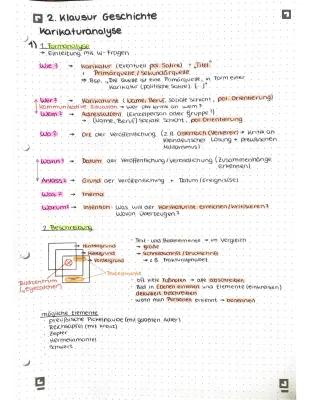 2. Klausur Geschichte
Karikaturanalyse
1) 1. Formanalyse
→ Einleitung mit W-Fragen
Wie? → Karikatur (eventuell pol. Satire) + „Titel"
↓ Primärquelle / Sekundärquelle
→ Bsp. „Die Quelle ist eine Primärquelle, in Form einer
Karikatur (politische Satire) [...]"
Wer? → Karikaturist (Name, Beruf, soziale Schicht, pol. Orientierung)
kommunikative Situation → Wer übt Kritik an wem?
Wem? → Adressat(en) (Einzelperson oder Gruppe?)
→ (Name, Beruf) soziale Schicht, pol. Orientierung
Wo? → Ort der Veröffentlichung (z.B. Österreich (Verlierer) → Kritik an
kleindeutscher Lösung + preußischen
Militarismus)
Wann? → Datum der Veröffentlichung (Zusammenhänge
erkennen)
Anlass? → Grund der Veröffentlichung + Datum (Ereignisse)
Was? → Thema
Warum? → Intention: Was will der Karikaturist erreichen/kritisieren?
Wovon überzeugen?
2. Beschreibung
- Text- und Bildelemente → im Vergleich
Hintergrund → größe
Mittelgrund → Schriftdicke/Druckschrift
Vordergrund → z.B. Frakturalphabet
Bildzentrum
- oft viele Fußnoten → alle abschreiben
- Bild in Ebenen einteilen und Elemente (einkreisen)
detailliert beschreiben
- wenn man Personen erkennt → benennen
mögliche Elemente
- preußische Pickelhaube (mit goldenem Adler)
- Reichsapfel (mit Kreuz)
- Zepter
- Hermelinmantel
- Schwert